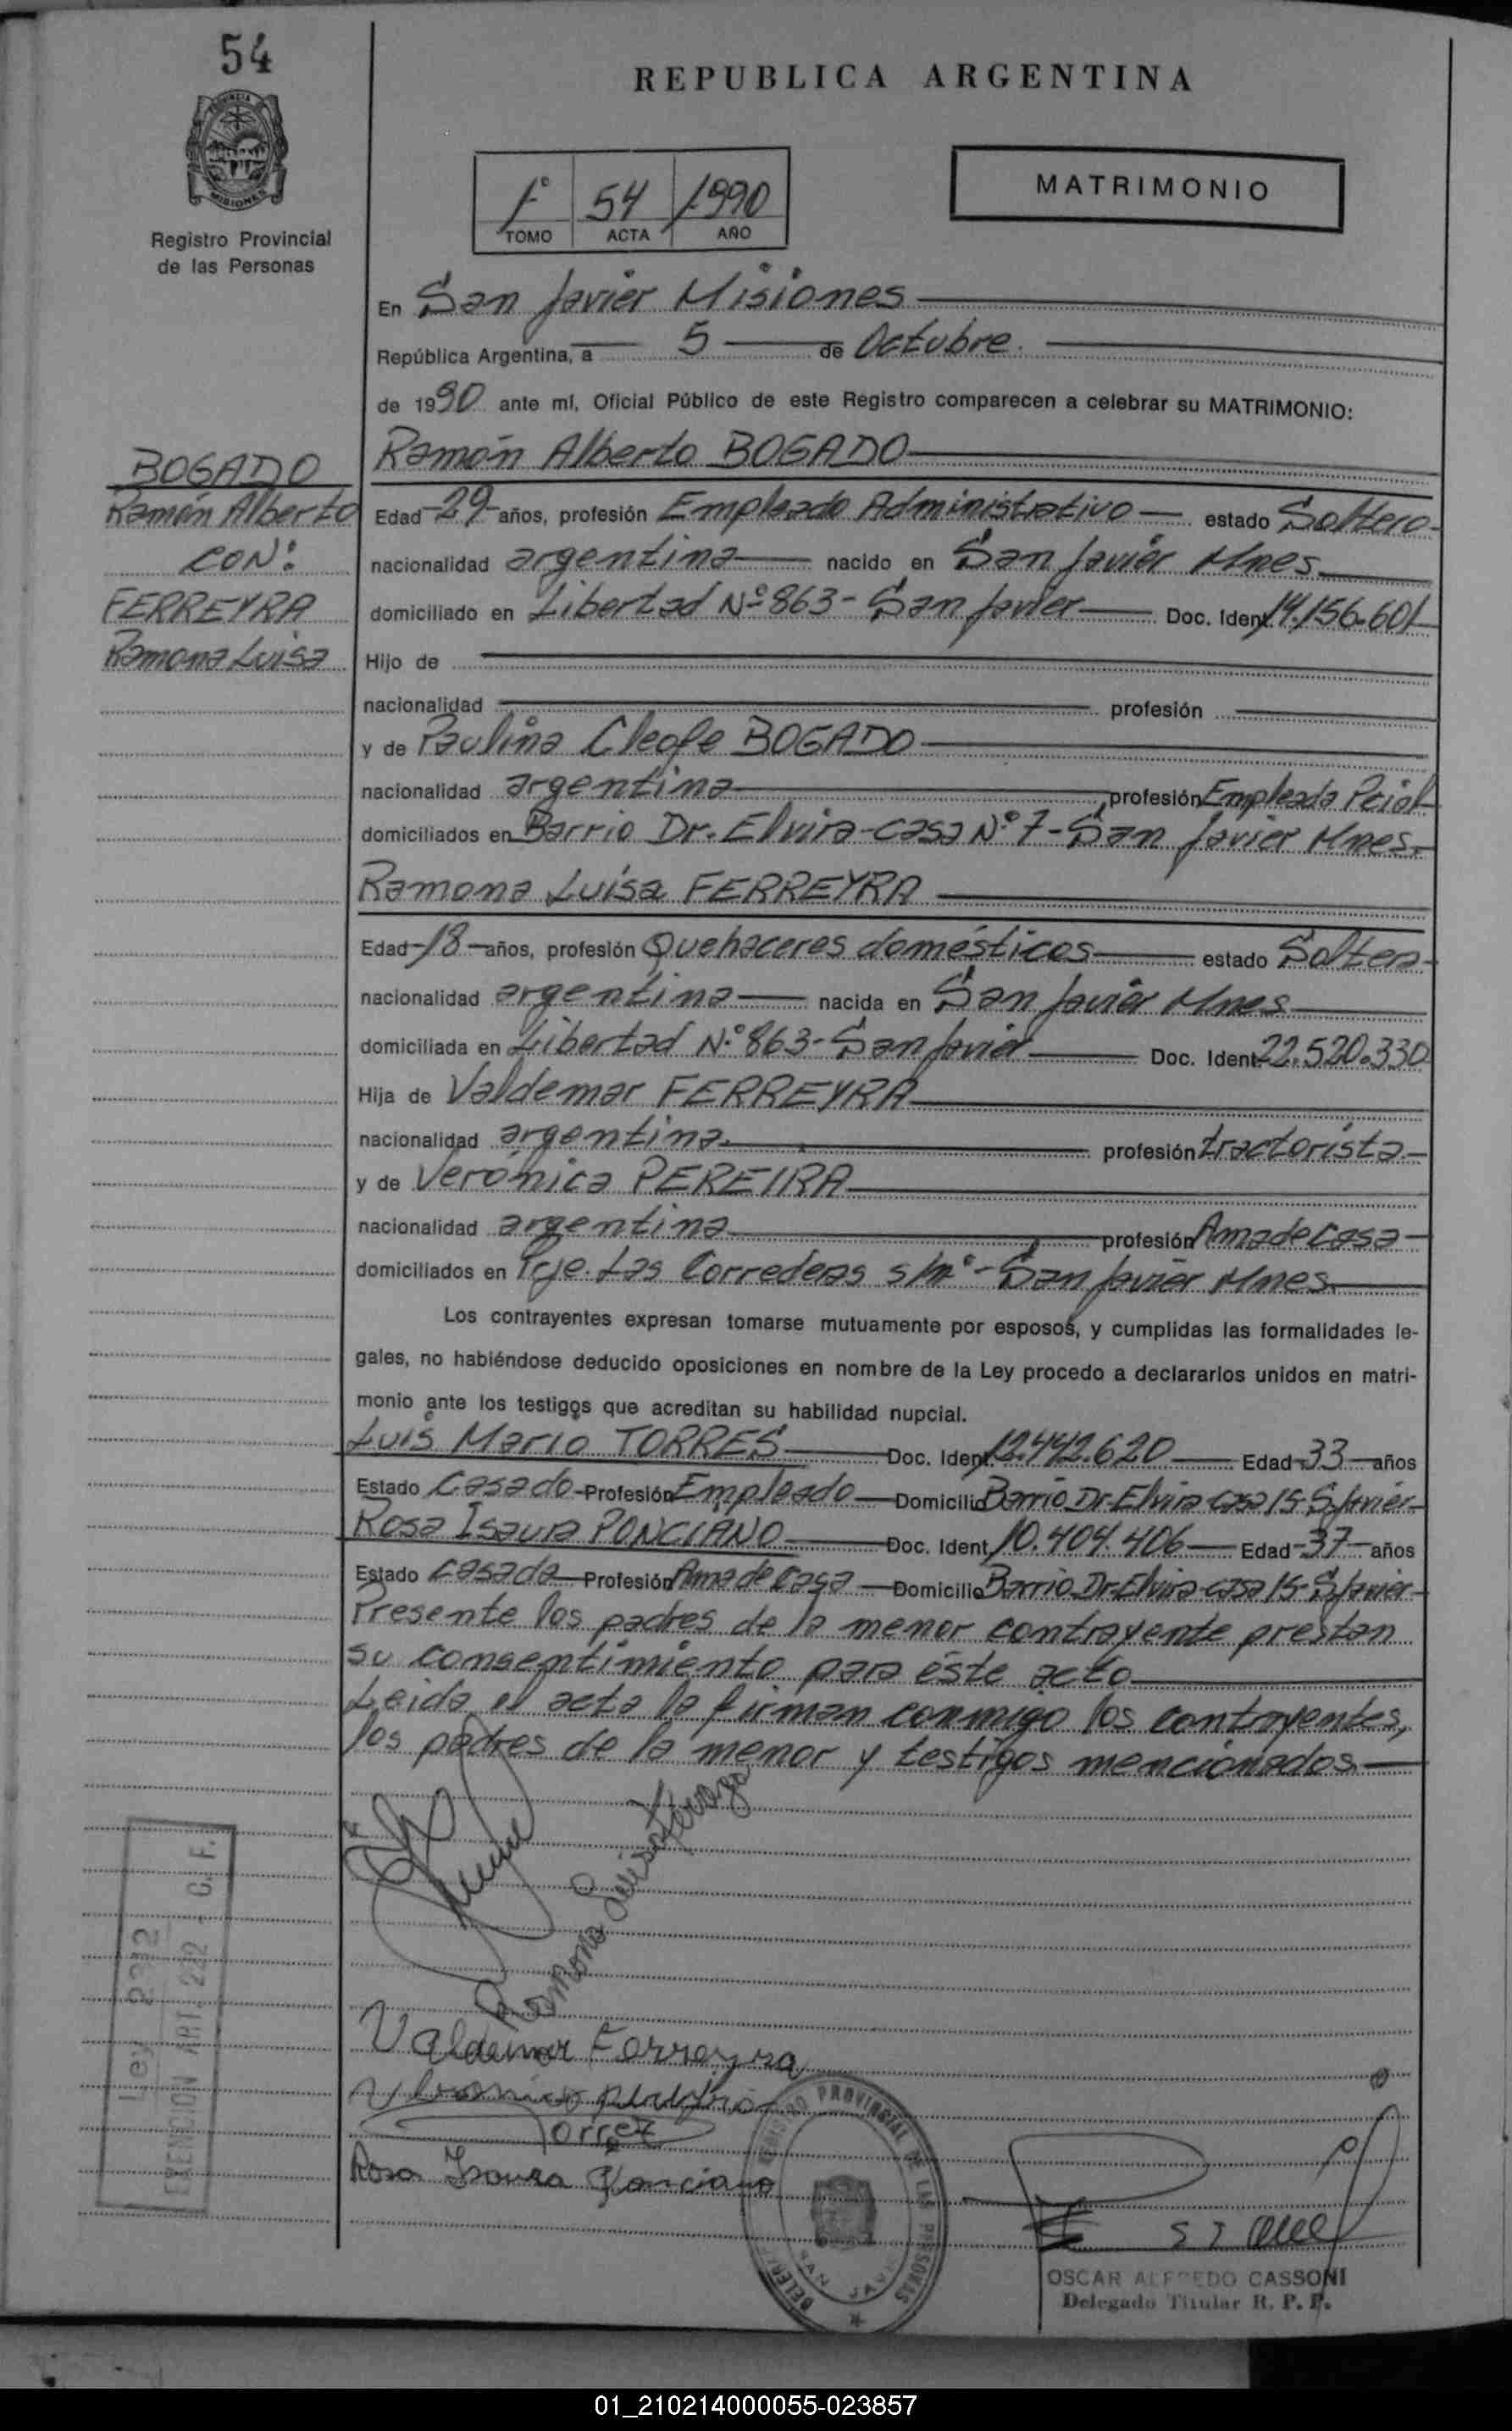 54
REPUBLICA ARGENTINA
PROVINCIA DE
MISIONES
Registro Provincial
de las Personas
1º 54 1990
TOMO ACTA AÑO
MATRIMONIO
En San Javier Misiones
República Argentina, a 5 de Octubre.
de 1990 ante mí, Oficial Público de este Registro comparecen a celebrar su MATRIMONIO:
BOGADO
Ramón Alberto
CON:
FERREYRA
Ramona Luisa
Ramón Alberto BOGADO
Edad 29 años, profesión Empleado Administrativo estado Soltero
nacionalidad argentina nacido en San Javier Mnes
domiciliado en Libertad Nº 863 - San Javier Doc. Ident. 14.156.601
Hijo de
nacionalidad profesión
y de Paulina Cleofe BOGADO
nacionalidad argentina profesión Empleada Pcial
domiciliados en Barrio Dr. Elvira - casa Nº 7 - San Javier Mnes.
Ramona Luisa FERREYRA
Edad 18 años, profesión Quehaceres domésticos estado Soltera
nacionalidad argentina nacida en San Javier Mnes
domiciliada en Libertad Nº 863 - San Javier Doc. Ident. 22.520.330
Hija de Valdemar FERREYRA
nacionalidad argentina profesión tractorista
y de Verónica PEREIRA
nacionalidad argentina profesión Ama de casa
domiciliados en Pcje. Las Correderas s/nº - San Javier Mnes
Los contrayentes expresan tomarse mutuamente por esposos, y cumplidas las formalidades le-
gales, no habiéndose deducido oposiciones en nombre de la Ley procedo a declararlos unidos en matri-
monio ante los testigos que acreditan su habilidad nupcial.
Luis Mario TORRES Doc. Ident. 12.442.620 Edad 33 años
Estado casado Profesión Empleado Domicilio Barrio Dr. Elvira casa 15 - S. Javier
Rosa Isaura PONCIANO Doc. Ident. 10.404.406 Edad 37 años
Estado casada Profesión Ama de casa Domicilio Barrio Dr. Elvira casa 15 - S. Javier
Presente los padres de la menor contrayente prestan
su consentimiento para éste acto
Leida el acta la firman conmigo los contrayentes,
los padres de la menor y testigos mencionados
Ramona Luisa Ferreyra
Valdemar Ferreyra
Torrez
Rosa Isaura Ponciano
Ley 2312
EXENCION ART. 222 - C. F.
REGISTRO PROVINCIAL DE LAS PERSONAS
SAN JAVIER
OSCAR ALFREDO CASSONI
Delegado Titular R. P. P.
01_210214000055-023857